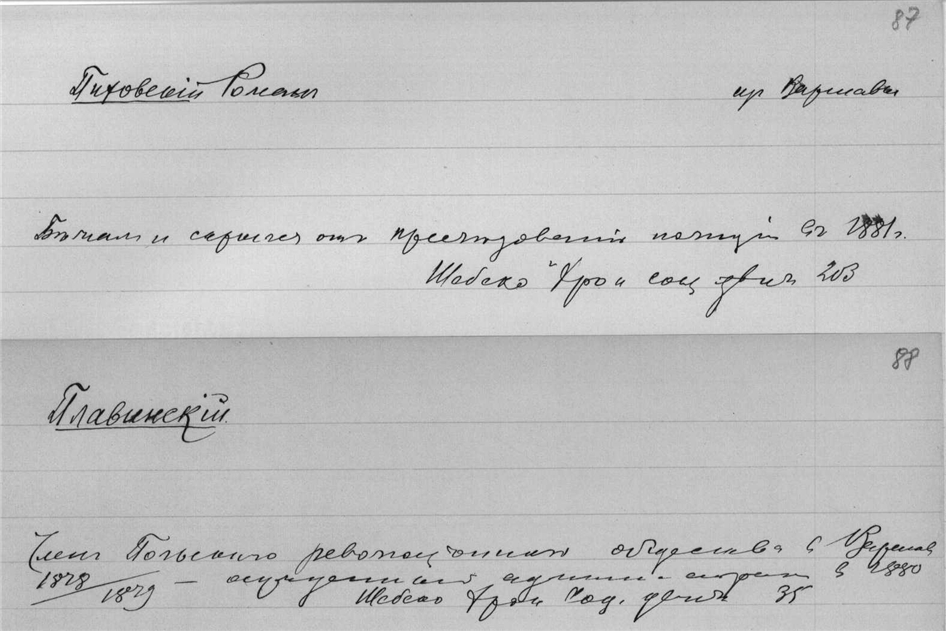 87
Пиховскій Романъ из Варшавы
Бѣжалъ и скрылся отъ преслѣдованій полиціи въ 1881 г.
Шебеко "Хрон соц движ 203
88
Плавинскій.
Членъ Польскаго революціоннаго общества в Варшав
1878/1879 — осужденный админ. в 1880
Шебеко Хрон Соц. движ 35